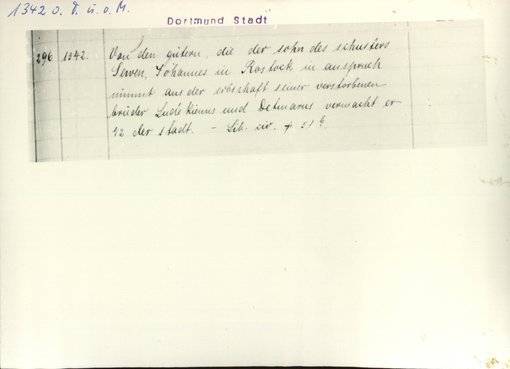 1342 o. T. u. o. M.
Dortmund Stadt
296 1342. Von den gütern, die der sohn des schusters
Johannes in Rostock in anspruch
nimmt aus der erbschaft seiner verstorbenen
brüder und Detmarus vermacht er
1/2 der stadt. – Lib. civ. f 51